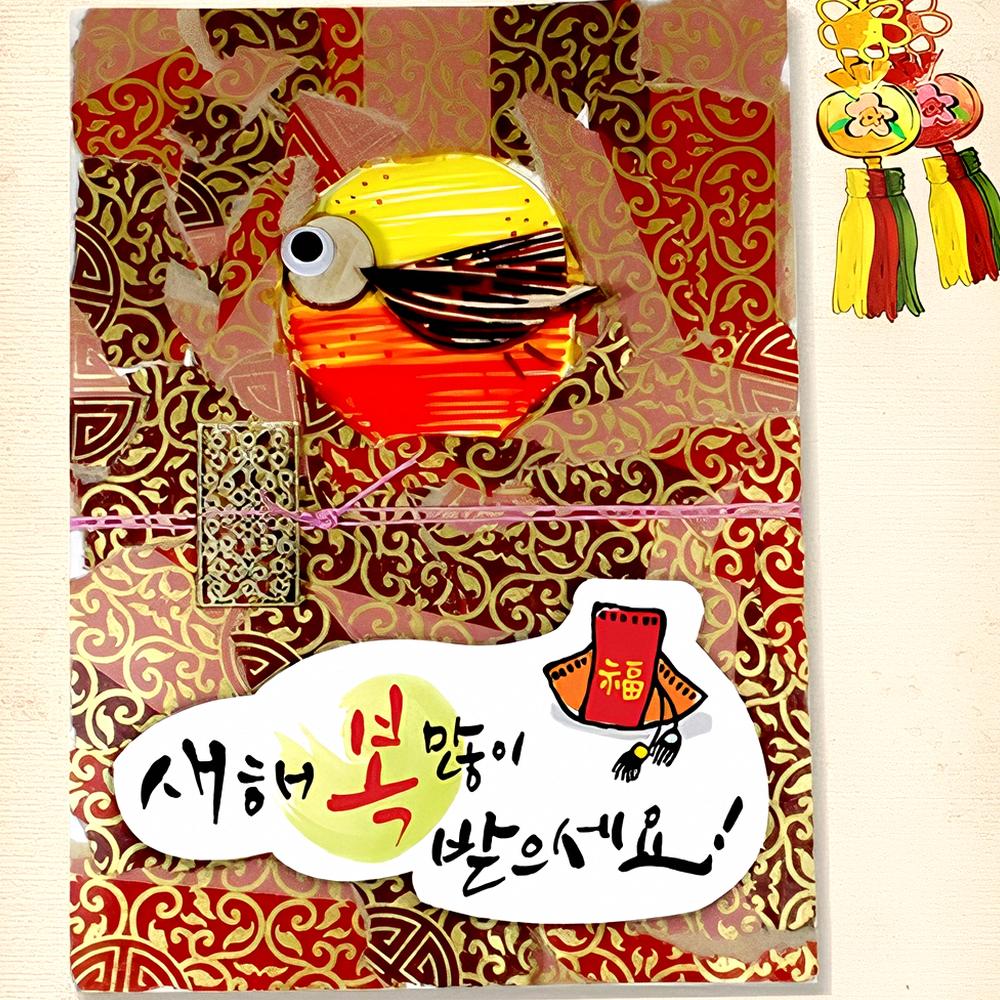 福
새해 복 많이
받으세요!